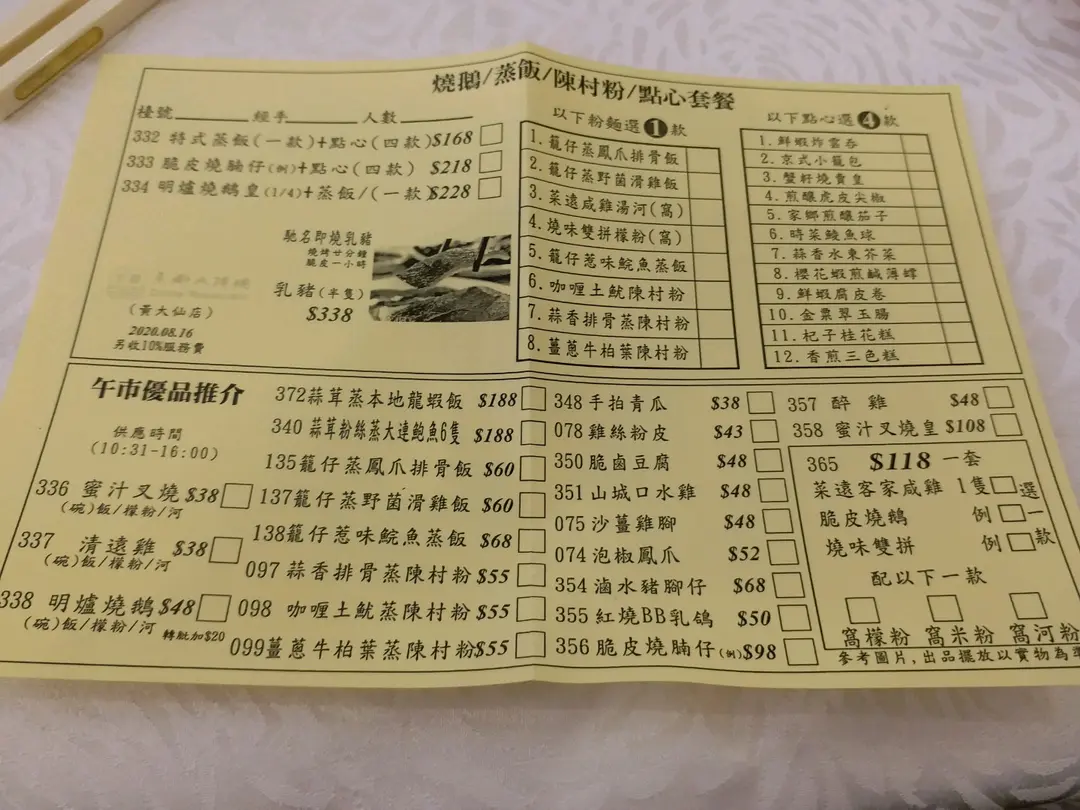 燒鵝/蒸飯/陳村粉/點心套餐
檯號 經手 人數
332 特式蒸飯(一款)+點心(四款)$168
333 脆皮燒腩仔(例)+點心(四款) $218
334 明爐燒鵝皇(1/4)+蒸飯/(一款)$228
馳名即燒乳豬
燒烤廿分鐘
脆皮一小時
乳豬(半隻)
$338
(黃大仙店)
2020.08.16
另收10%服務費
以下粉麵選1款
1. 籠仔蒸鳳爪排骨飯
2. 籠仔蒸野菌滑雞飯
3. 菜遠咸雞湯河(窩)
4. 燒味雙拼檬粉(窩)
5. 籠仔惹味鯇魚蒸飯
6. 咖喱土魷陳村粉
7. 蒜香排骨蒸陳村粉
8. 薑蔥牛柏葉陳村粉
以下點心選4款
1. 鮮蝦炸雲吞
2. 京式小籠包
3. 蟹籽燒賣皇
4. 煎釀虎皮尖椒
5. 家鄉煎釀茄子
6. 時菜鯪魚球
7. 蒜香水東芥菜
8. 櫻花蝦煎鹹薄罉
9. 鮮蝦腐皮卷
10. 金粟翠玉腸
11. 杞子桂花糕
12. 香煎三色糕
午市優品推介
供應時間
(10:31-16:00)
336 蜜汁叉燒 $38
(碗)飯/檬粉/河
337 清遠雞 $38
(碗)飯/檬粉/河
338 明爐燒鵝 $48
(碗)飯/檬粉/河 轉髀加$20
372蒜茸蒸本地龍蝦飯 $188
340 蒜茸粉絲蒸大連鮑魚6隻 $188
135籠仔蒸鳳爪排骨飯 $60
137籠仔蒸野菌滑雞飯 $60
138籠仔惹味鯇魚蒸飯 $68
097 蒜香排骨蒸陳村粉 $55
098 咖喱土魷蒸陳村粉 $55
099薑蔥牛柏葉蒸陳村粉$55
348 手拍青瓜 $38
078 雞絲粉皮 $43
350 脆鹵豆腐 $48
351 山城口水雞 $48
075 沙薑雞腳 $48
074 泡椒鳳爪 $52
354 滷水豬腳仔 $68
355 紅燒BB乳鴿 $50
356 脆皮燒腩仔(例)$98
357 醉 雞 $48
358 蜜汁叉燒皇 $108
365 $118 一套
菜遠客家咸雞 1隻
脆皮燒鵝 例
燒味雙拼 例
選一款
配以下一款
窩檬粉 窩米粉 窩河粉
參考圖片,出品擺放以實物為準